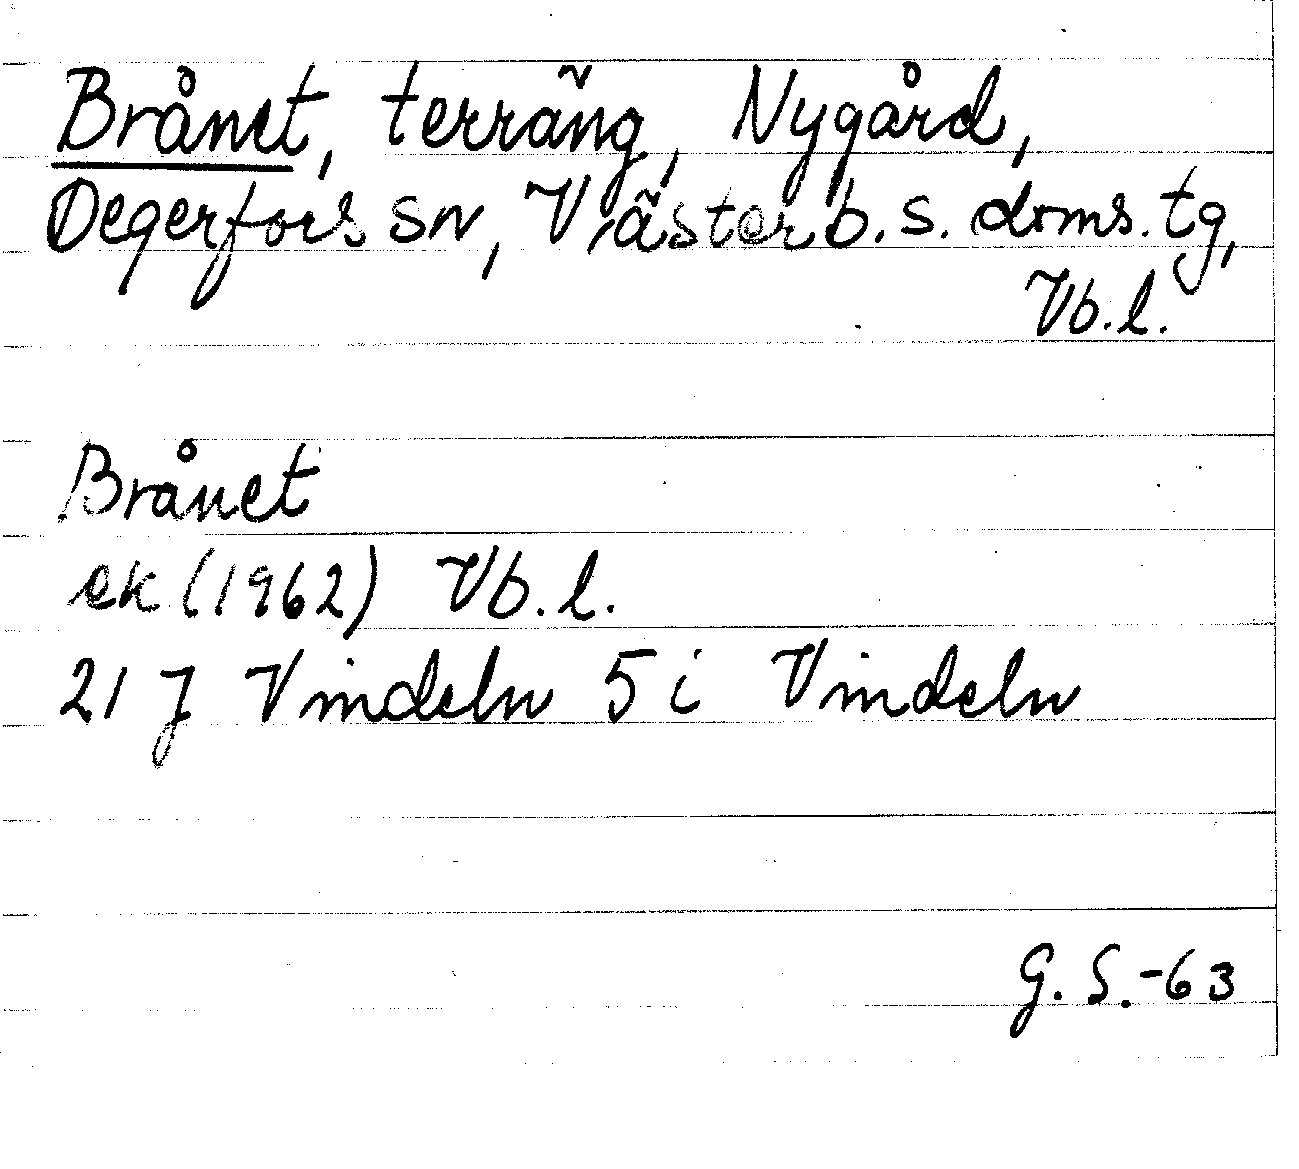 Brånet, terräng, Nygård,
Degerfors sn, Västerb. s. doms. tg,
Vb. l.
Brånet
ek (1962) Vb. l.
21 J Vindeln 5 i Vindeln
G. S. -63